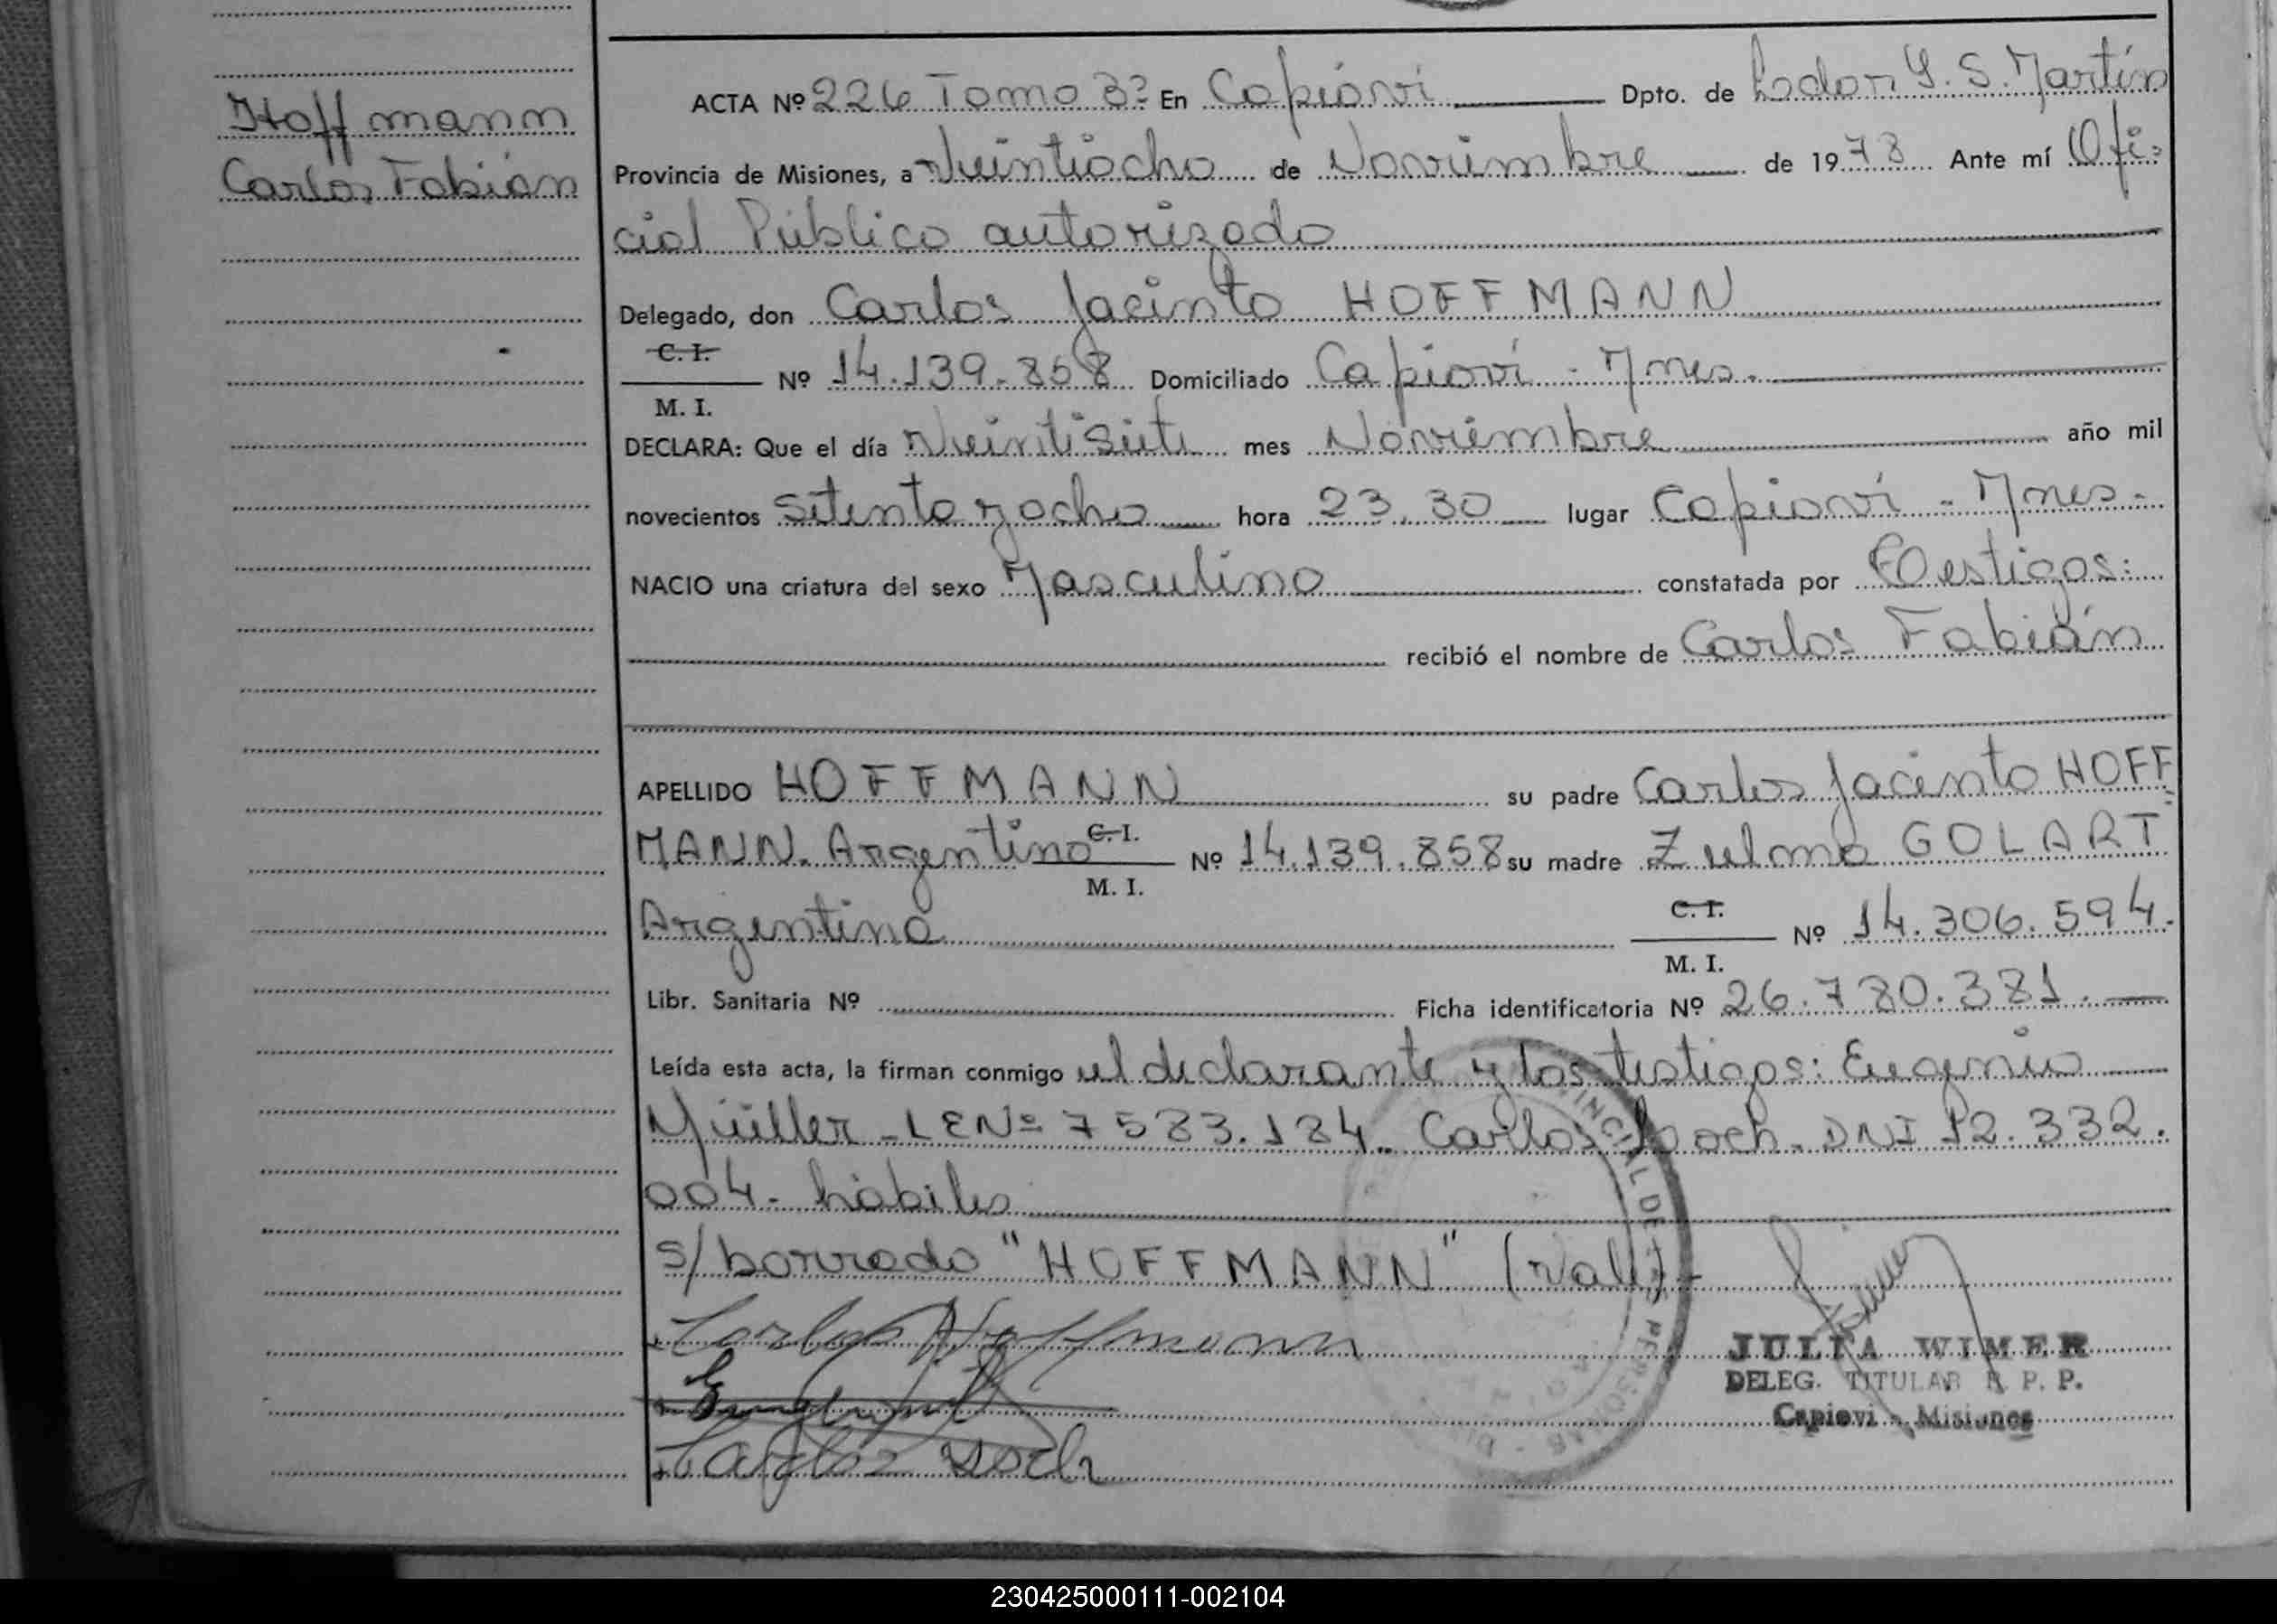 Hoffmann
Carlos Fabián
ACTA Nº 226 Tomo 3º En Capioví Dpto. de Ldor. G. S. Martín
Provincia de Misiones, a Veintiocho de Noviembre de 1978 Ante mí Ofi-
cial Público autorizado
Delegado, don Carlos Jacinto HOFFMANN
C. I.
M. I. Nº 14.139.858 Domiciliado Capioví - Mnes.
DECLARA: Que el día Veintisiete mes Noviembre año mil
novecientos Setenta y ocho hora 23,30 lugar Capioví - Mnes.
NACIO una criatura del sexo Masculino constatada por Testigos:
recibió el nombre de Carlos Fabián
APELLIDO HOFFMANN su padre Carlos Jacinto HOFF-
MANN. Argentino C. I. M. I. Nº 14.139.858 su madre Zulma GOLART
Argentina C. I. M. I. Nº 14.306.594.
Libr. Sanitaria Nº Ficha identificatoria Nº 26.780.381.
Leída esta acta, la firman conmigo el declarante y los testigos: Eugenio
Müller - LE Nº 7583.184. Carlos Loch. DNI 12.332.
004. hábiles
s/borrado "HOFFMANN" (Vale)
Carlos Hoffmann
Carlos Loch
JULIA WIMER
DELEG. TITULAR R. P. P.
Capiovi - Misiones
230425000111-002104